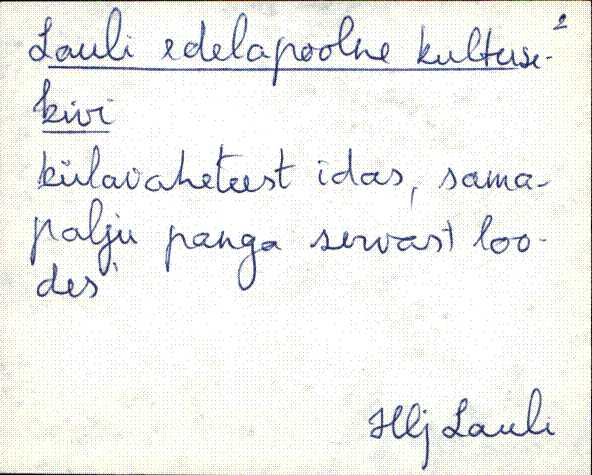 Lauli edelapoolne kultuse- ²
kivi
külavaheteest idas, sama-
palju panga servast loo-
des
Hlj Lauli